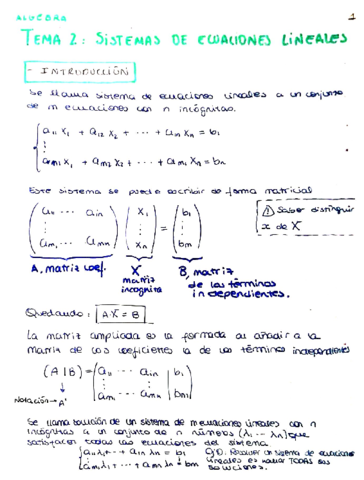 ALGEBRA 1
TEMA 2: SISTEMAS DE ECUACIONES LINEALES
- INTRODUCCIÓN
Se llama sistema de ecuaciones lineales a un conjunto
de m ecuaciones con n incógnitas.
a11 x1 + a12 x2 + ... + a1n xn = b1
⋮
am1 x1 + am2 x2 + ... + amn xn = bm
Este sistema se puede escribir de forma matricial
(a11 ... a1n) (x1) = (b1)
⋮ ⋮ ⋮
(am1 ... amn) (xn) (bm)
Saber distinguir
x de X
A, matriz coef. X matriz incognita B, matriz de los términos independientes.
Quedando: A·X = B
La matriz ampliada es la formada al añadir a la
matriz de los coeficientes la de los términos independientes
(A|B) = (a11 ... a1n | b1)
⋮ ⋮ ⋮
(am1 ... amn | bm)
Notación → A'
Se llama solución de un sistema de m ecuaciones lineales con n
incógnitas a un conjunto de n números (λ1 ... λn) que
satisfacen todas las ecuaciones del sistema
a11 λ1 + ... + a1n λn = b1
am1 λ1 + ... + amn λn = bm
Resolver un sistema de ecuaciones
lineales es hallar TODAS sus
soluciones.